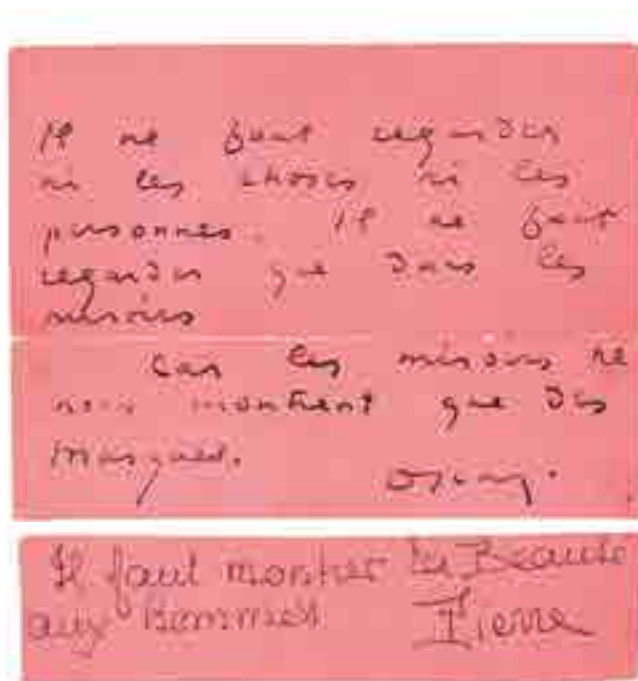 Il ne faut regarder
ni les choses ni les
personnes. Il ne faut
regarder que dans les
miroirs
Car les miroirs ne
nous montrent que des
masques.
Il faut montrer la Beauté
aux hommes
Pierre